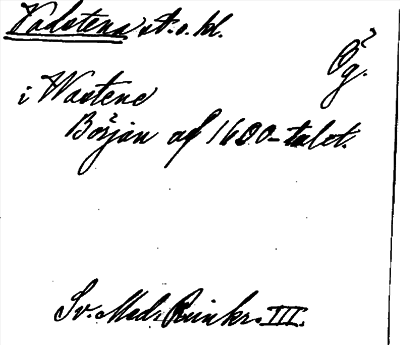 Vadstena st. o. kl.
Ög.
i Wastene
Början af 1600-talet.
Sv. Med. Runkr. III.